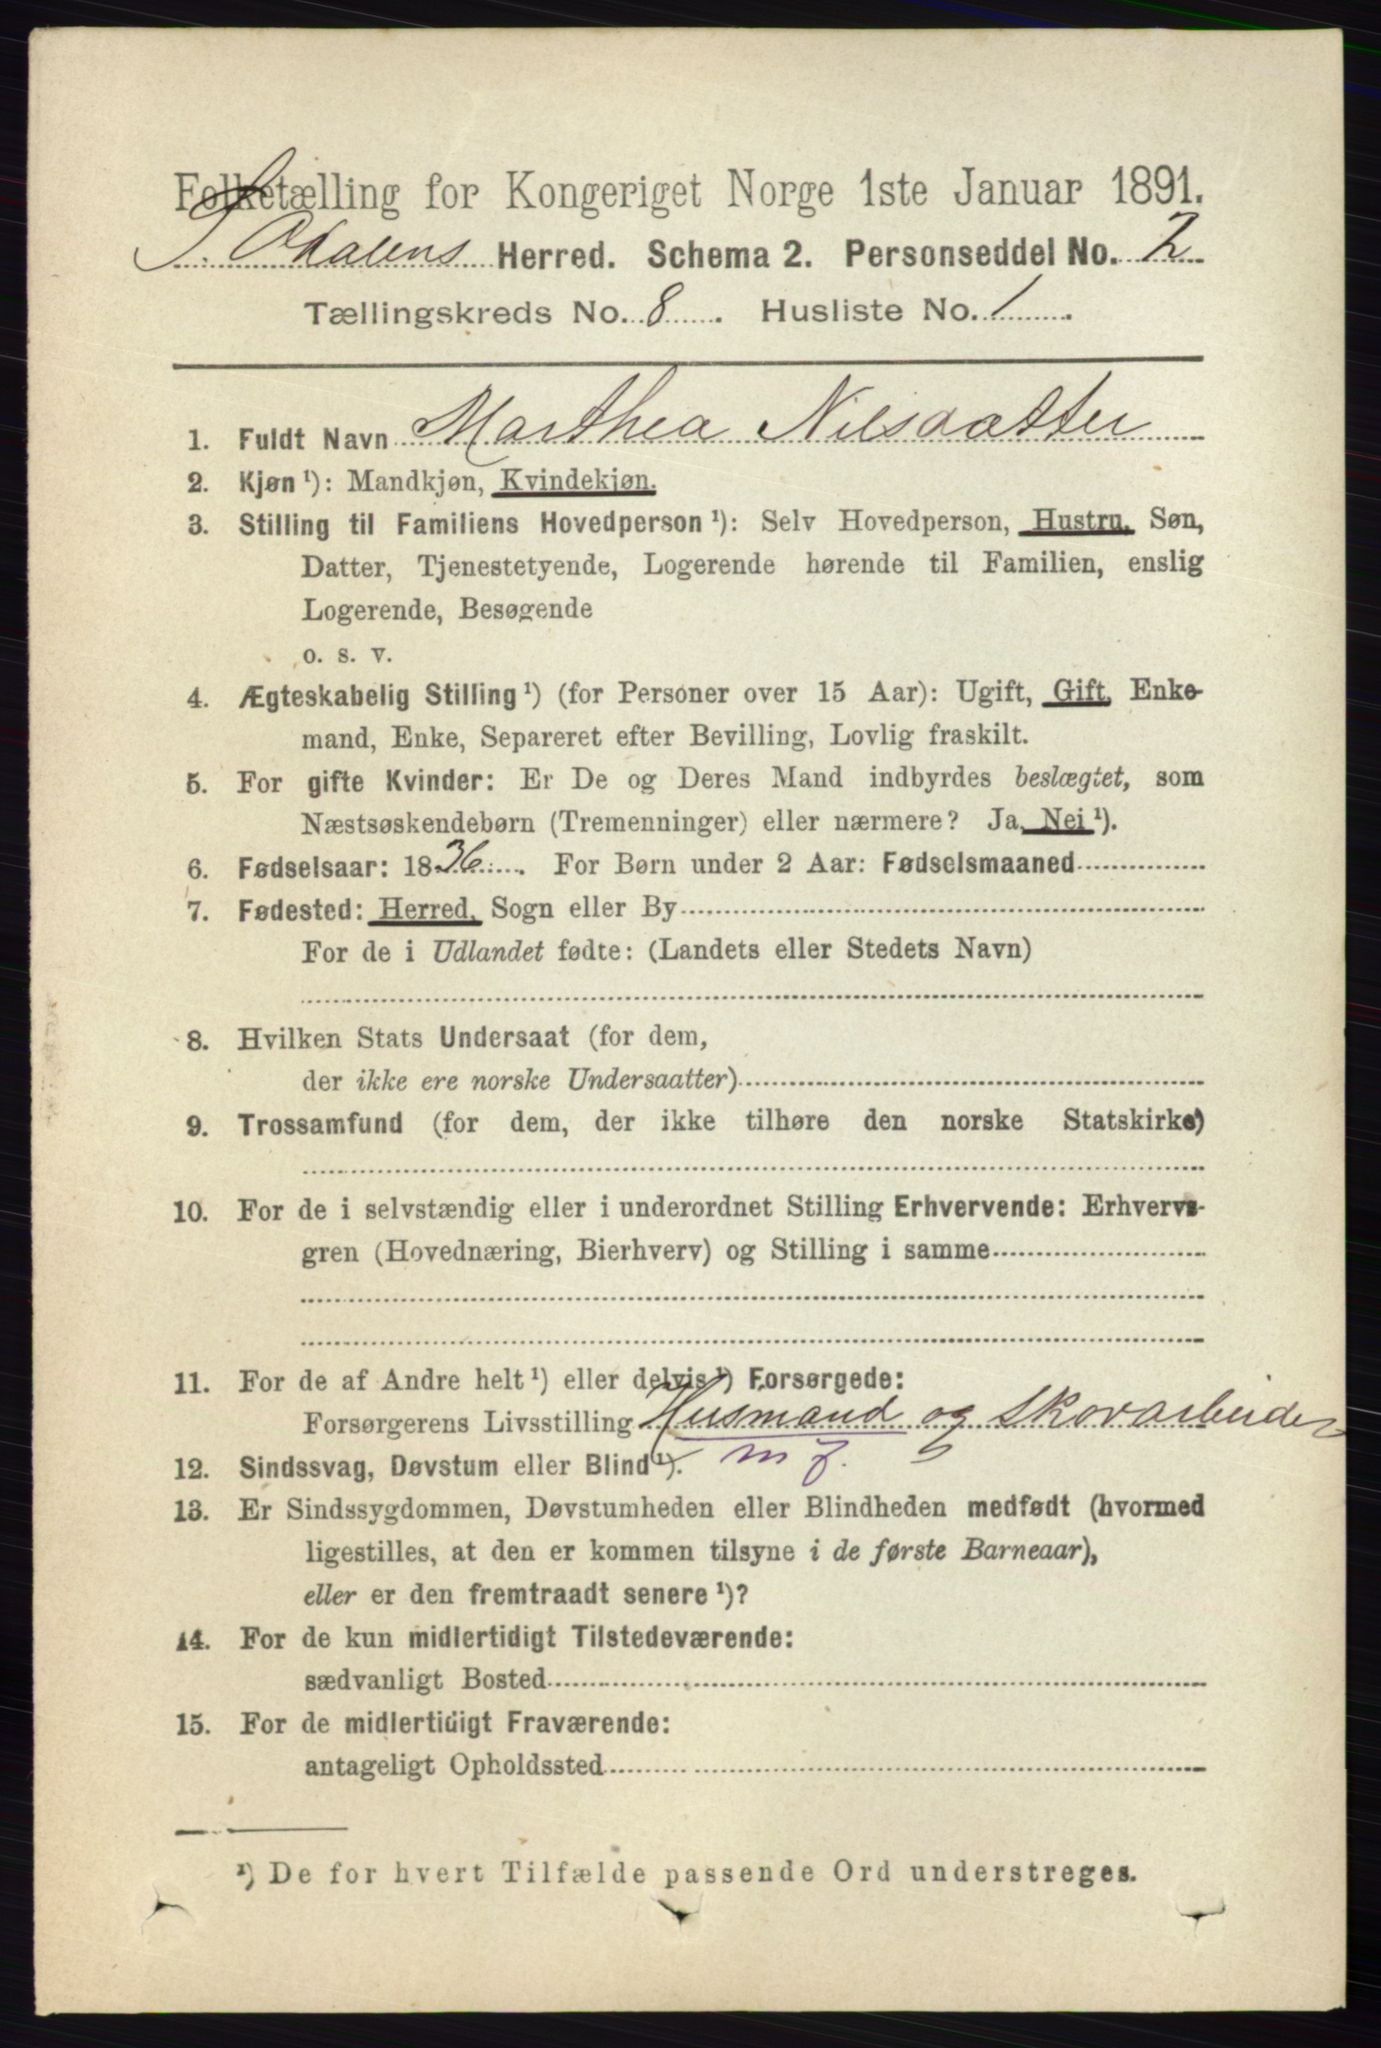 Folketælling for Kongeriget Norge 1ste Januar 1891.
S. Odalens Herred. Schema 2. Personseddel No. 2
Tællingskreds No. 8. Husliste No. 1.
1. Fuldt Navn Marthea Nilsdatter
2. Kjøn ¹): Mandkjøn, Kvindekjøn.
3. Stilling til Familiens Hovedperson ¹): Selv Hovedperson, Hustru, Søn,
Datter, Tjenestetyende, Logerende hørende til Familien, enslig
Logerende, Besøgende
o. s. v.
4. Ægteskabelig Stilling ¹) (for Personer over 15 Aar): Ugift, Gift, Enke-
mand, Enke, Separeret efter Bevilling, Lovlig fraskilt.
5. For gifte Kvinder: Er De og Deres Mand indbyrdes beslægtet, som
Næstsøskendebørn (Tremenninger) eller nærmere? Ja, Nei ¹).
6. Fødselsaar: 1836. For Børn under 2 Aar: Fødselsmaaned
7. Fødested: Herred, Sogn eller By
For de i Udlandet fødte: (Landets eller Stedets Navn)
8. Hvilken Stats Undersaat (for dem,
der ikke ere norske Undersaatter)
9. Trossamfund (for dem, der ikke tilhøre den norske Statskirke)
10. For de i selvstændig eller i underordnet Stilling Erhvervende: Erhvervs-
gren (Hovednæring, Bierhverv) og Stilling i samme
11. For de af Andre helt ¹) eller delvis ¹) Forsørgede:
Forsørgerens Livsstilling Husmand og Skovarbeider
12. Sindssvag, Døvstum eller Blind ¹). m f.
13. Er Sindssygdommen, Døvstumheden eller Blindheden medfødt (hvormed
ligestilles, at den er kommen tilsyne i de første Barneaar),
eller er den fremtraadt senere ¹)?
14. For de kun midlertidigt Tilstedeværende:
sædvanligt Bosted
15. For de midlertidigt Fraværende:
antageligt Opholdssted
¹) De for hvert Tilfælde passende Ord understreges.